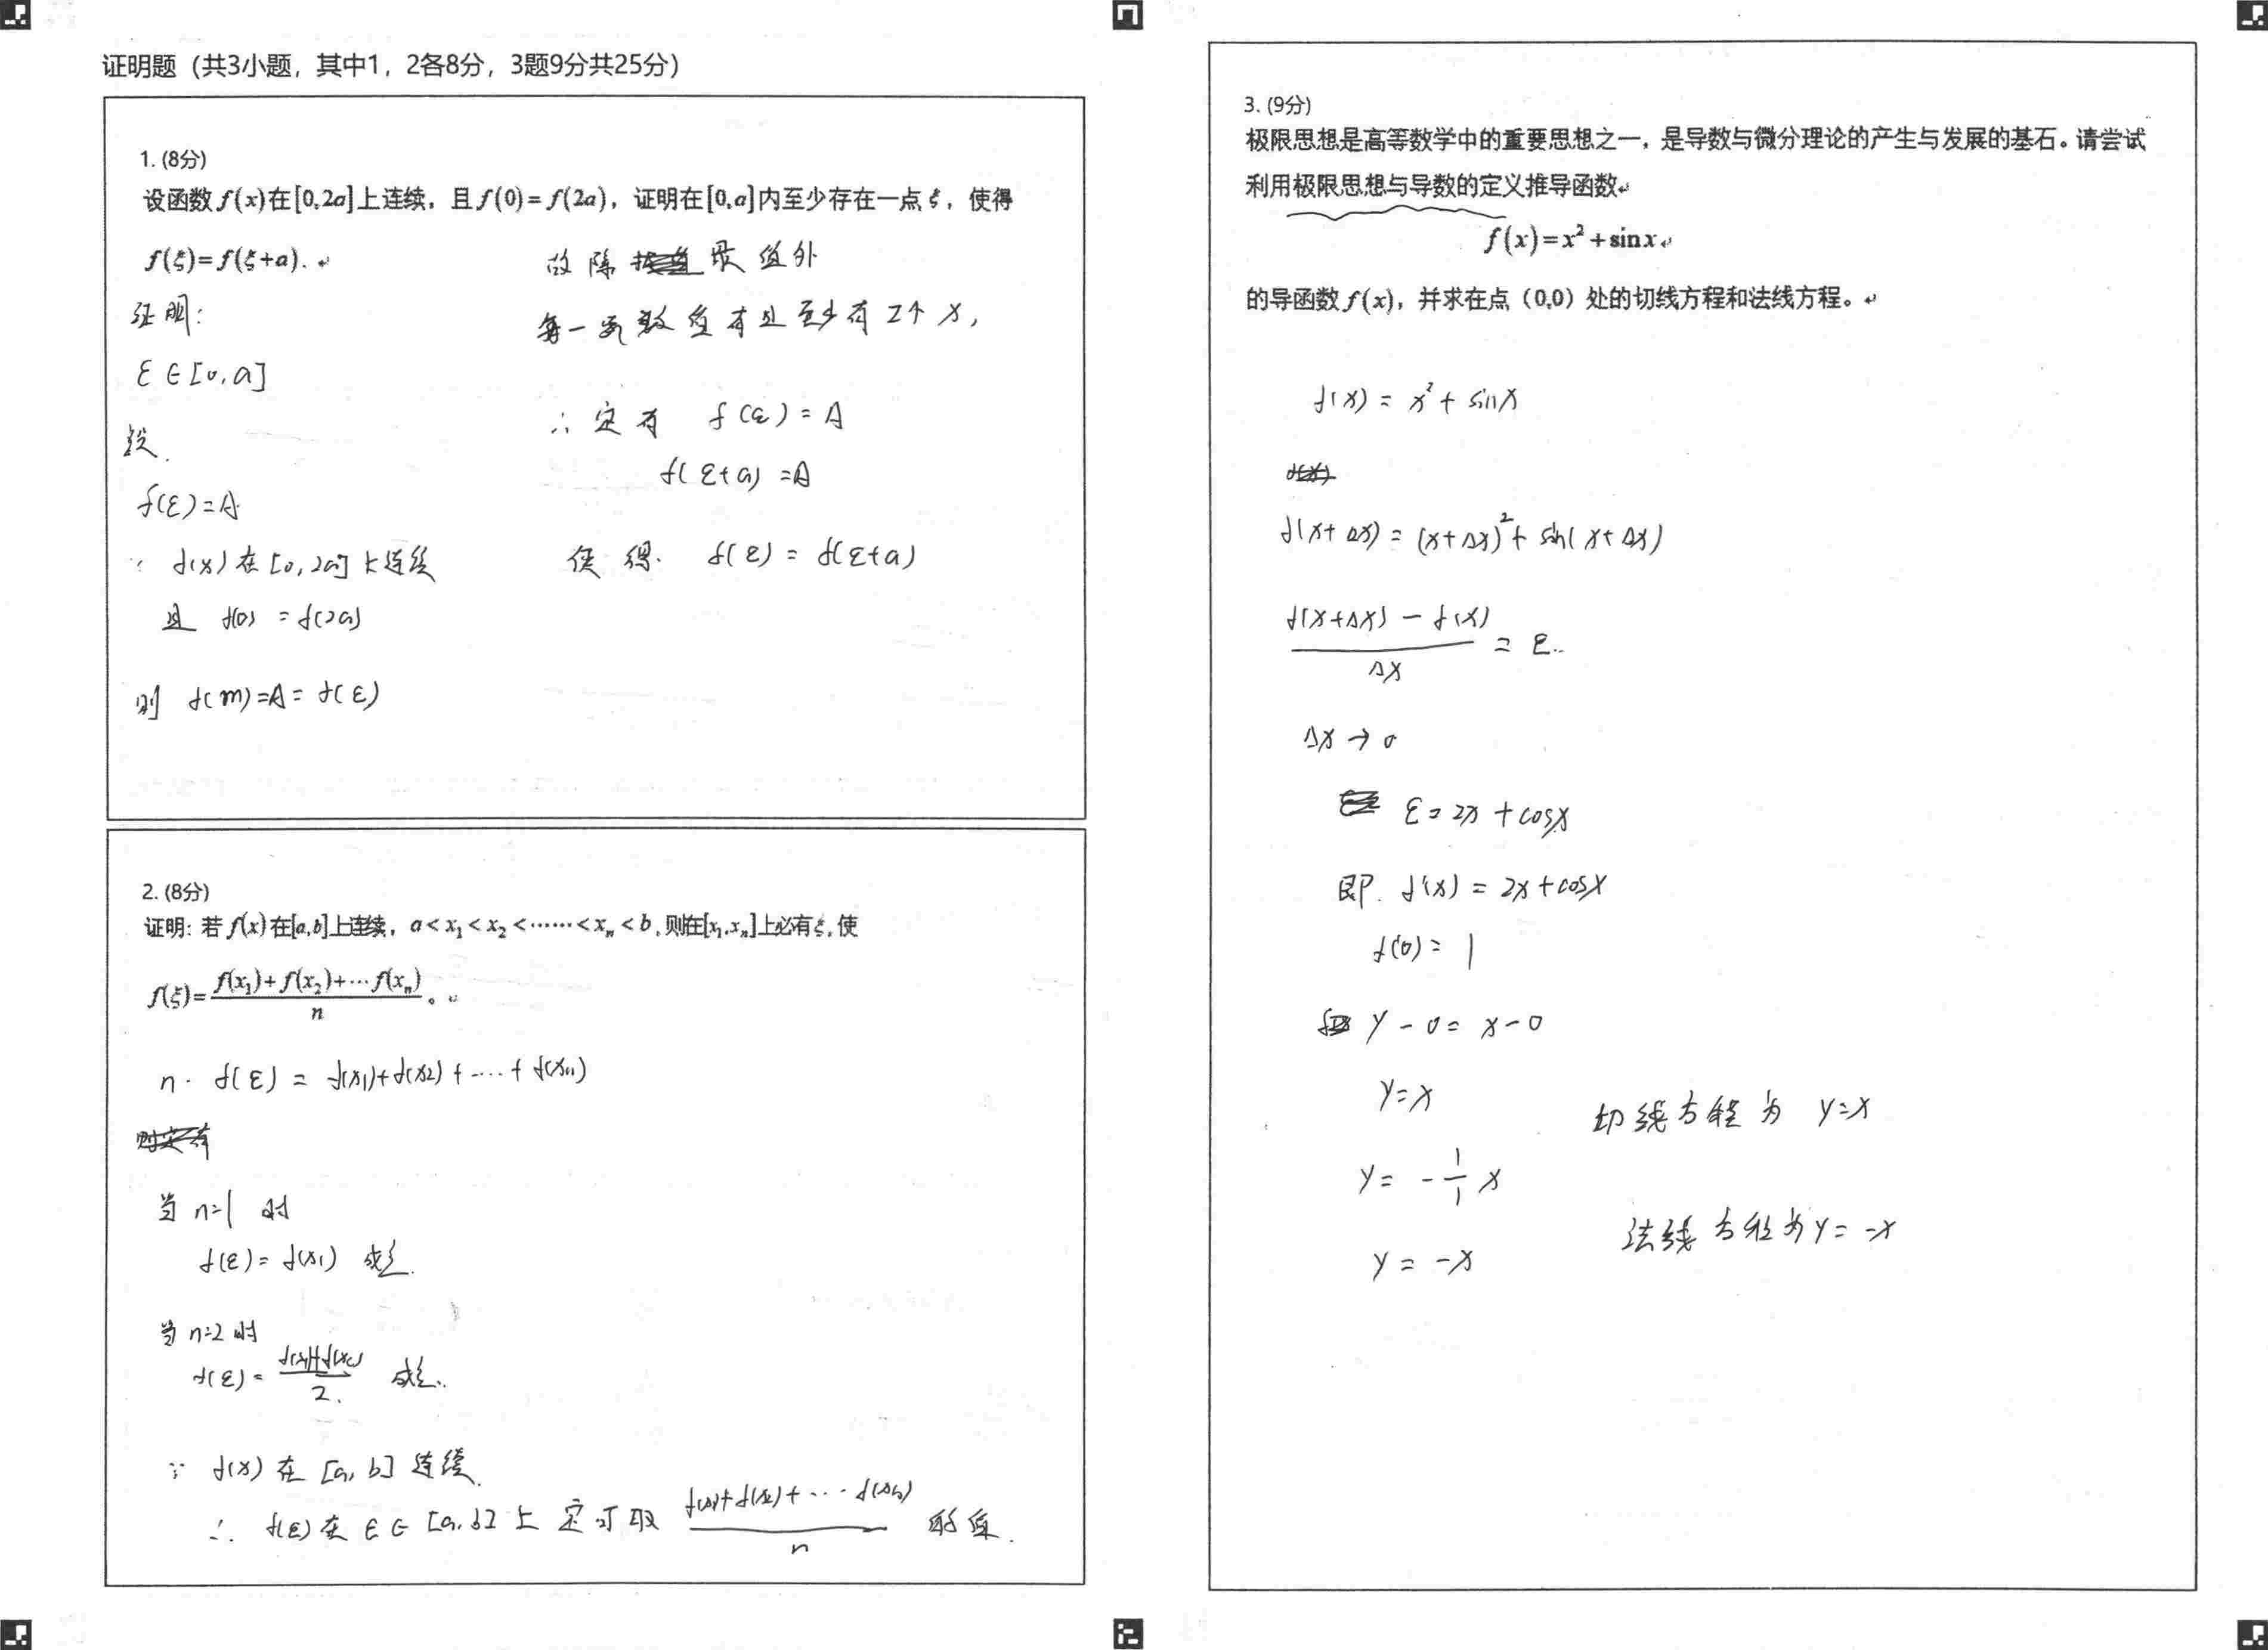 证明题（共3小题，其中1，2各8分，3题9分共25分）
1. (8分)
设函数 f(x)在[0,2a]上连续，且 f(0) = f(2a)，证明在[0,a]内至少存在一点 ξ，使得
f(ξ)=f(ξ+a).
证明：
ε∈[0,a]
设.
f(ε)=A.
∵ f(x) 在 [0,2a] 上连续
且 f(0) = f(2a)
则 f(m)=A= f(ε)
故除最值外
每一函数值有且至少有2个 x，
∴ 定有 f(ε)=A
f(ε+a)=A
使得. f(ε) = f(ε+a)
2. (8分)
证明：若 f(x) 在[a,b]上连续，a < x₁ < x₂ < …… < xₙ < b，则在[x₁,xₙ]上必有 ξ，使
f(ξ)= (f(x₁)+f(x₂)+⋯f(xₙ))/n 。
n · f(ε) = f(x₁)+f(x₂)+⋯+f(xₙ)
当 n=1 时
f(ε)= f(x₁) 成立.
当 n=2 时
f(ε)= (f(x₁)+f(x₂))/2. 成立.
∵ f(x) 在 [a,b] 连续.
∴ f(ε) 在 ε∈[a,b] 上 定可取 (f(x₁)+f(x₂)+⋯f(xₙ))/n 的值.
3. (9分)
极限思想是高等数学中的重要思想之一，是导数与微分理论的产生与发展的基石。请尝试
利用极限思想与导数的定义推导函数
f(x)=x²+sinx
的导函数 f(x)，并求在点（0,0）处的切线方程和法线方程。
f(x) = x² + sinx
f(x+Δx) = (x+Δx)² + sin(x+Δx)
(f(x+Δx) − f(x))/Δx = ε..
Δx → 0
ε = 2x + cosx
即. f'(x) = 2x+cosx
f'(0) = 1
y − 0 = x − 0
y=x
切线方程为 y=x
y = −1/1 x
法线方程为 y = −x
y = −x